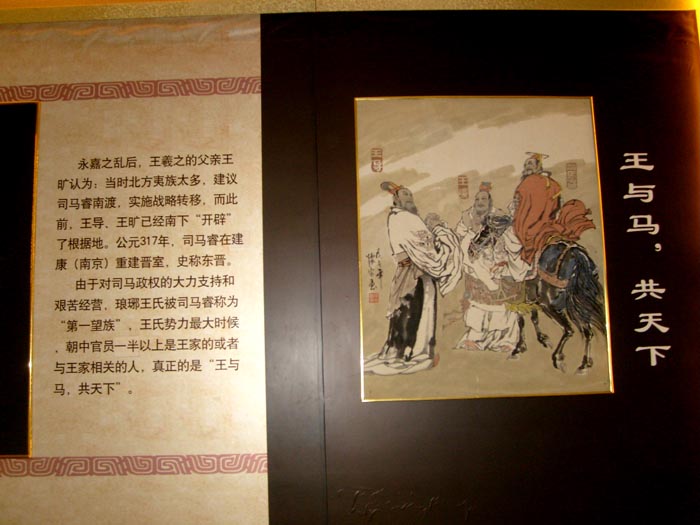 永嘉之乱后，王羲之的父亲王
旷认为：当时北方夷族太多，建议
司马睿南渡，实施战略转移，而此
前，王导、王旷已经南下“开辟”
了根据地。公元317年，司马睿在建
康（南京）重建晋室，史称东晋。
由于对司马政权的大力支持和
艰苦经营，琅琊王氏被司马睿称为
“第一望族”，王氏势力最大时候
，朝中官员一半以上是王家的或者
与王家相关的人，真正的是“王与
马，共天下”。
王与马，共天下
王导